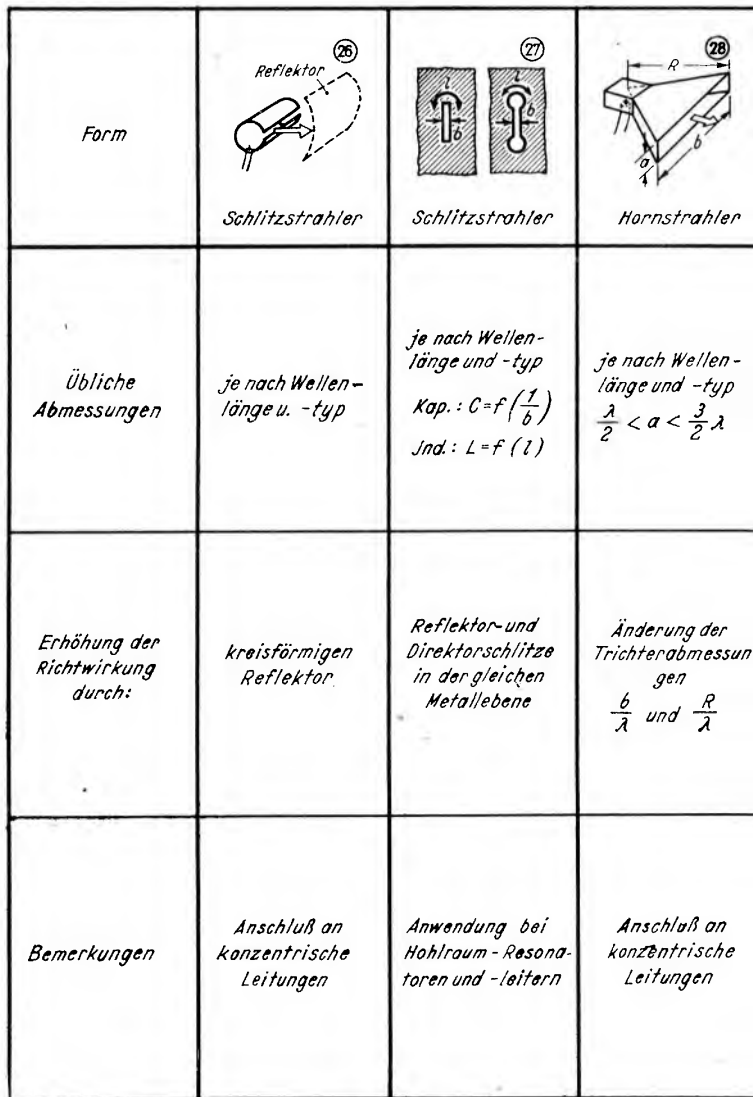 Form
26
Reflektor
Schlitzstrahler
27
l
b
l
b
Schlitzstrahler
28
R
a
b
Hornstrahler
Übliche
Abmessungen
je nach Wellen-
länge u. -typ
je nach Wellen-
länge und -typ
Kap.: C=f(1/b)
Jnd.: L=f(l)
je nach Wellen-
länge und -typ
λ/2 < a < 3/2 λ
Erhöhung der
Richtwirkung
durch:
kreisförmigen
Reflektor
Reflektor- und
Direktorschlitze
in der gleichen
Metallebene
Änderung der
Trichterabmessun
gen
b/λ und R/λ
Bemerkungen
Anschluß an
konzentrische
Leitungen
Anwendung bei
Hohlraum-Resona-
toren und -leitern
Anschluß an
konzentrische
Leitungen